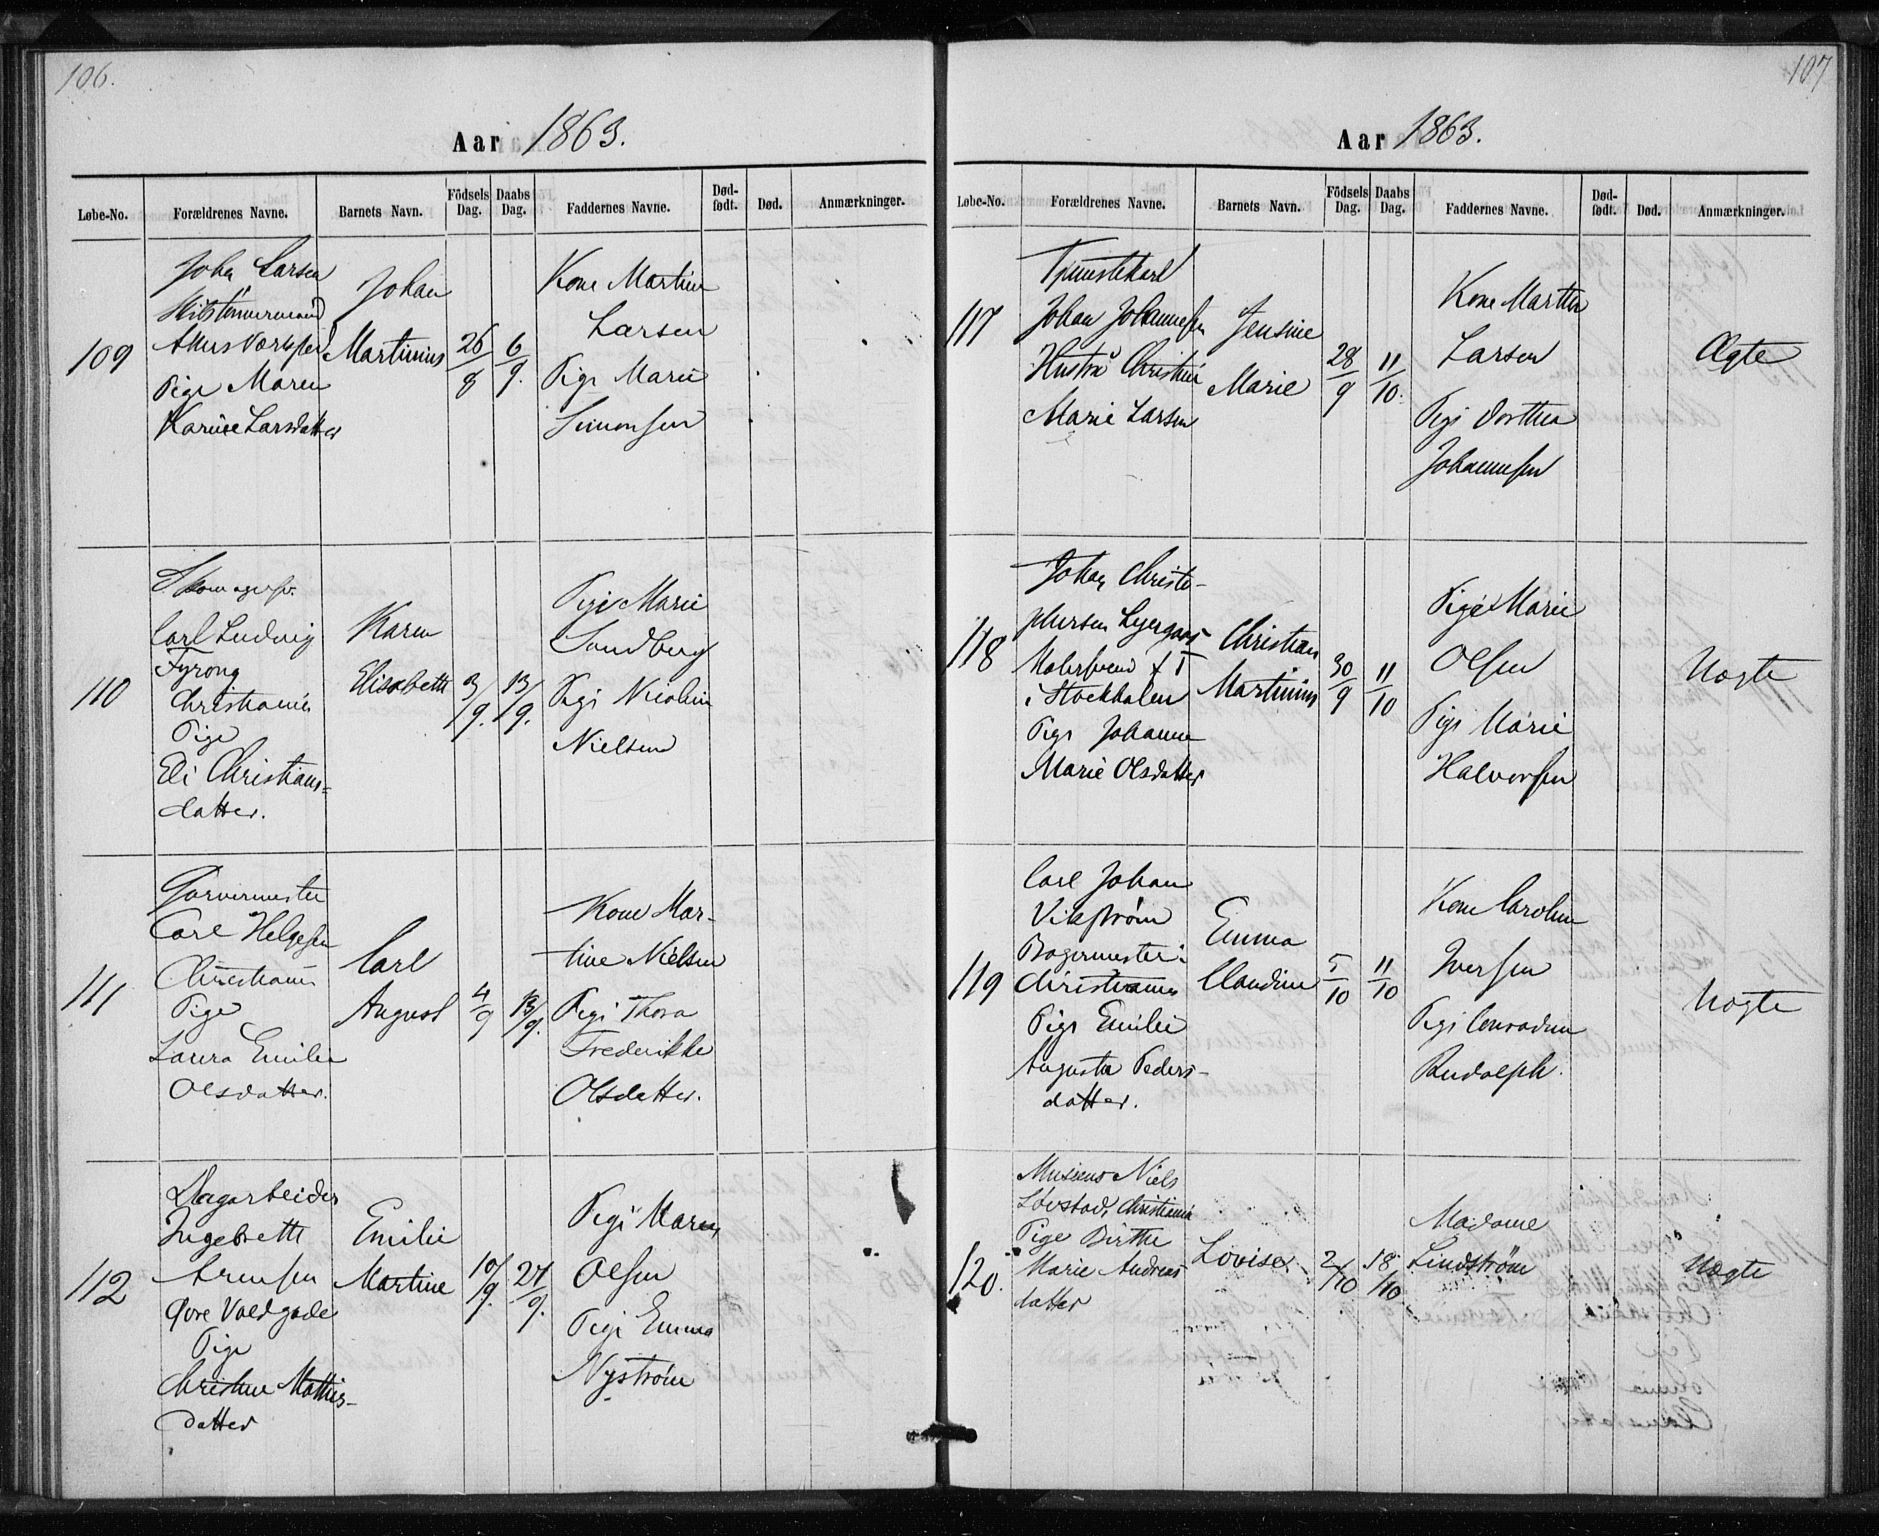 106.
Aar 1863.
Løbe-No. Forældrenes Navne. Barnets Navn. Födsels Dag. Daabs Dag. Faddernes Navne. Død-født. Død. Anmærkninger.
109
Johan Larsen
Pige Maren
Karine Larsdatter
Johan
Martinius
26/8
6/9.
Kone Martin
Larsen
Pige Marie
Simonsen
110
Skomagersv.
Carl Ludvig
Christiania
Pige
Eli Christians-
datter.
Karen
Elisabeth
3/9.
13/9.
Pige Marie
Sundberg
Pige Nicolin
Nielsen
111
Garvermester
Carl Helgesen
Christiania
Pige
Laura Emilie
Olsdatter.
Carl
August
4/9
13/9.
Kone Mar-
tine Nielsen
Pige Thora
Frederikke
Olsdatter.
112
Dagarbeider
Ingebrett
Arensen
Øvre Voldgade
Pige
Christine Mathis-
datter
Emilie
Martine
10/9.
27/9.
Pige Maren
Olsen
Pige Emma
Nystrøm
107
Aar 1863.
Løbe-No. Forældrenes Navne. Barnets Navn. Födsels Dag. Daabs Dag. Faddernes Navne. Død-født. Død. Anmærkninger.
117
Tjenestekarl
Johan Johannesen
Hustru Christine
Marie Larsen
Jensine
Marie
28/9
11/10.
Kone Marthe
Larsen
Pige Dorthea
Johannesen
Ægte
118
Johan Christo-
phersen
Malersvend
i Stockholm
Pige Johanne
Marie Olsdatter
Christian
Martinius
30/9
11/10
Pige Marie
Olsen
Pige Marie
Halvorsen
Uægte
119
Carl Johan
Vikstrøm
Bagermester i
Christiania
Pige Emilie
Augusta Peders-
datter.
Emma
Claudine
5/10
11/10
Kone Caroline
Iversen
Pige Conradine
Rudolph.
Uægte
120.
Musicus Niels
Løvstad, Christiania
Pige Birthe
Marie Andreas
datter
Lovise
2/10
18/10
Madame
Lindstrøm
Uægte